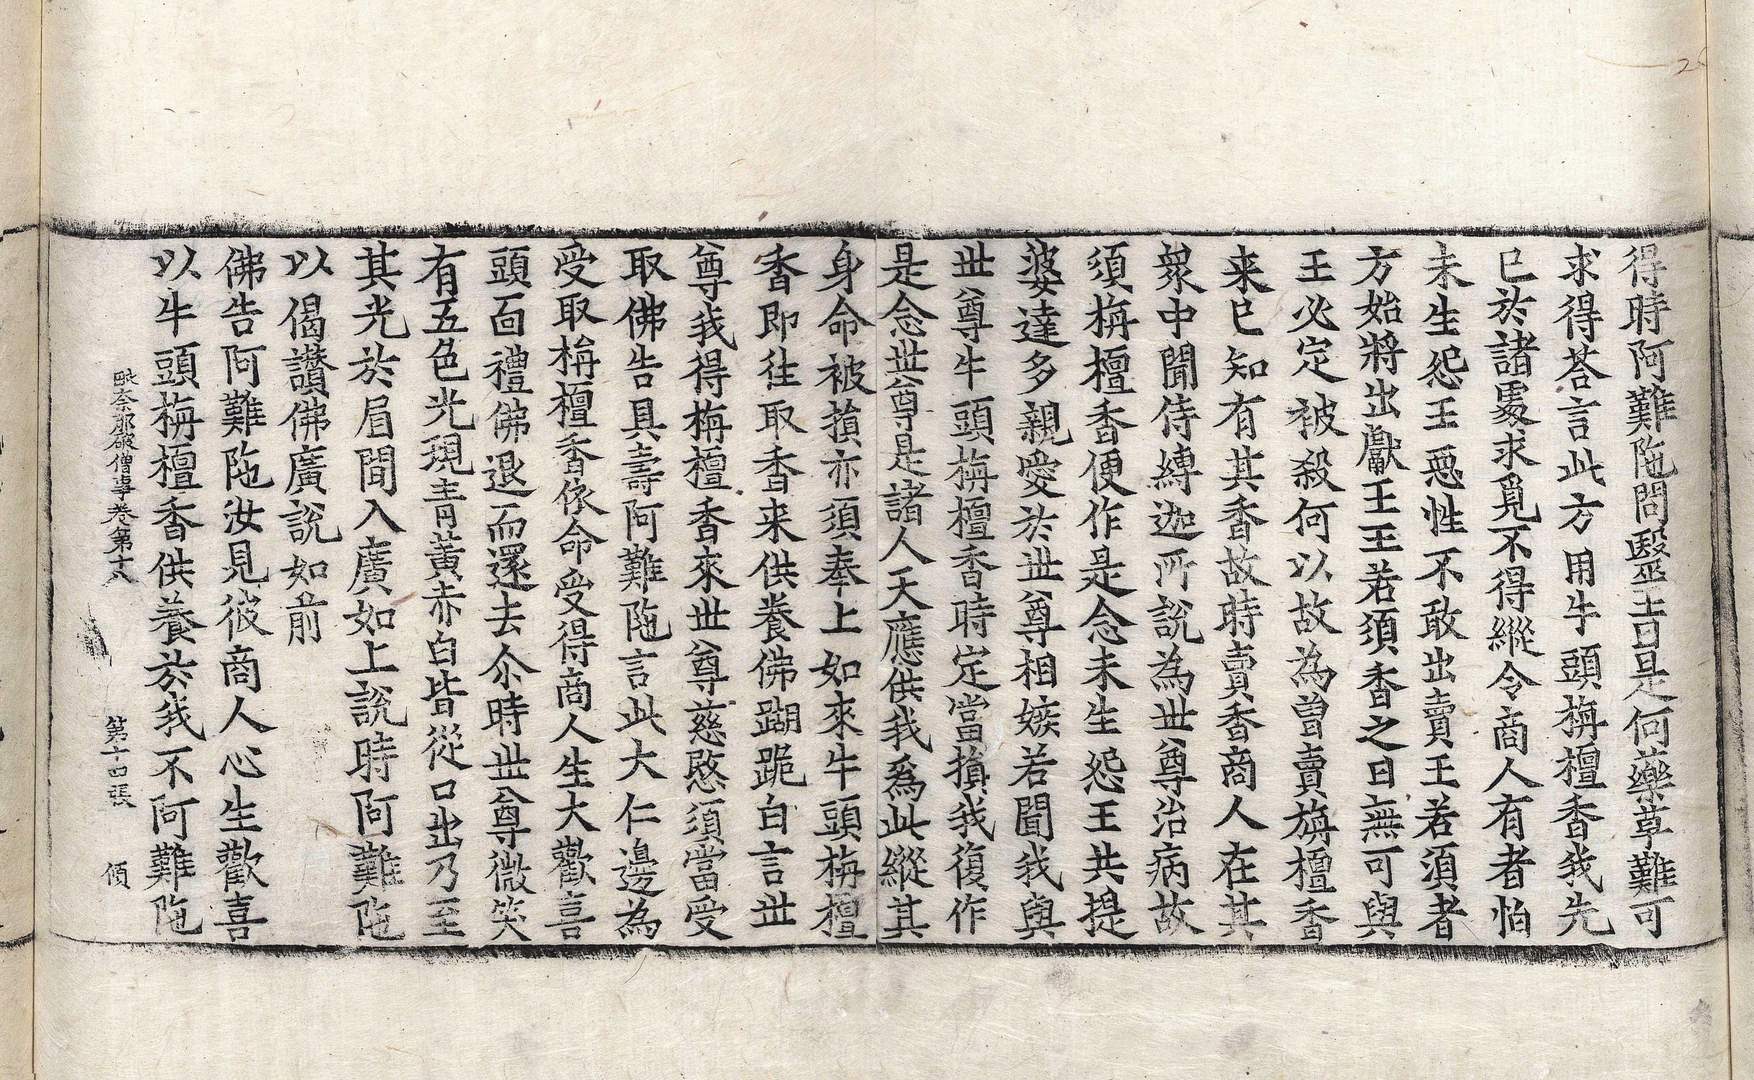 得時阿難陁問醫王曰是何藥草難可
求得荅言此方用牛頭栴檀香我先
已於諸處求覓不得縱令商人有者怕
未生怨王惡性不敢出賣王若須者
方始將出獻王王若須香之日無可與
王必定被殺何以故為曾賣旃檀香
来已知有其香故時賣香商人在其
衆中聞侍縛迦所說為世尊治病故
須栴檀香便作是念未生怨王共提
婆達多親愛於世尊相嫉若聞我與
世尊牛頭栴檀香時定當損我復作
是念世尊是諸人天應供我為此縱其
身命被損亦須奉上如來牛頭栴檀
香即往取香来供養佛𨄔跪白言世
尊我得栴檀香來世尊慈愍須當受
取佛告具壽阿難陁言此大仁邊為
受取栴檀香依命受得商人生大歡喜
頭面禮佛退而還去尒時世尊微笑
有五色光現青黃赤白皆從口出乃至
其光於眉間入廣如上說時阿難陁
以偈讃佛廣說如前
佛告阿難陁汝見彼商人心生歡喜
以牛頭栴檀香供養於我不阿難陁
毗奈耶破僧事卷第十八 第十四張 傾
2